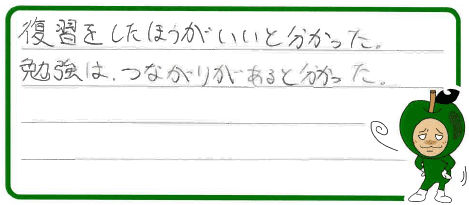 復習をしたほうがいいと分かった。
勉強は、つながりがあると分かった。